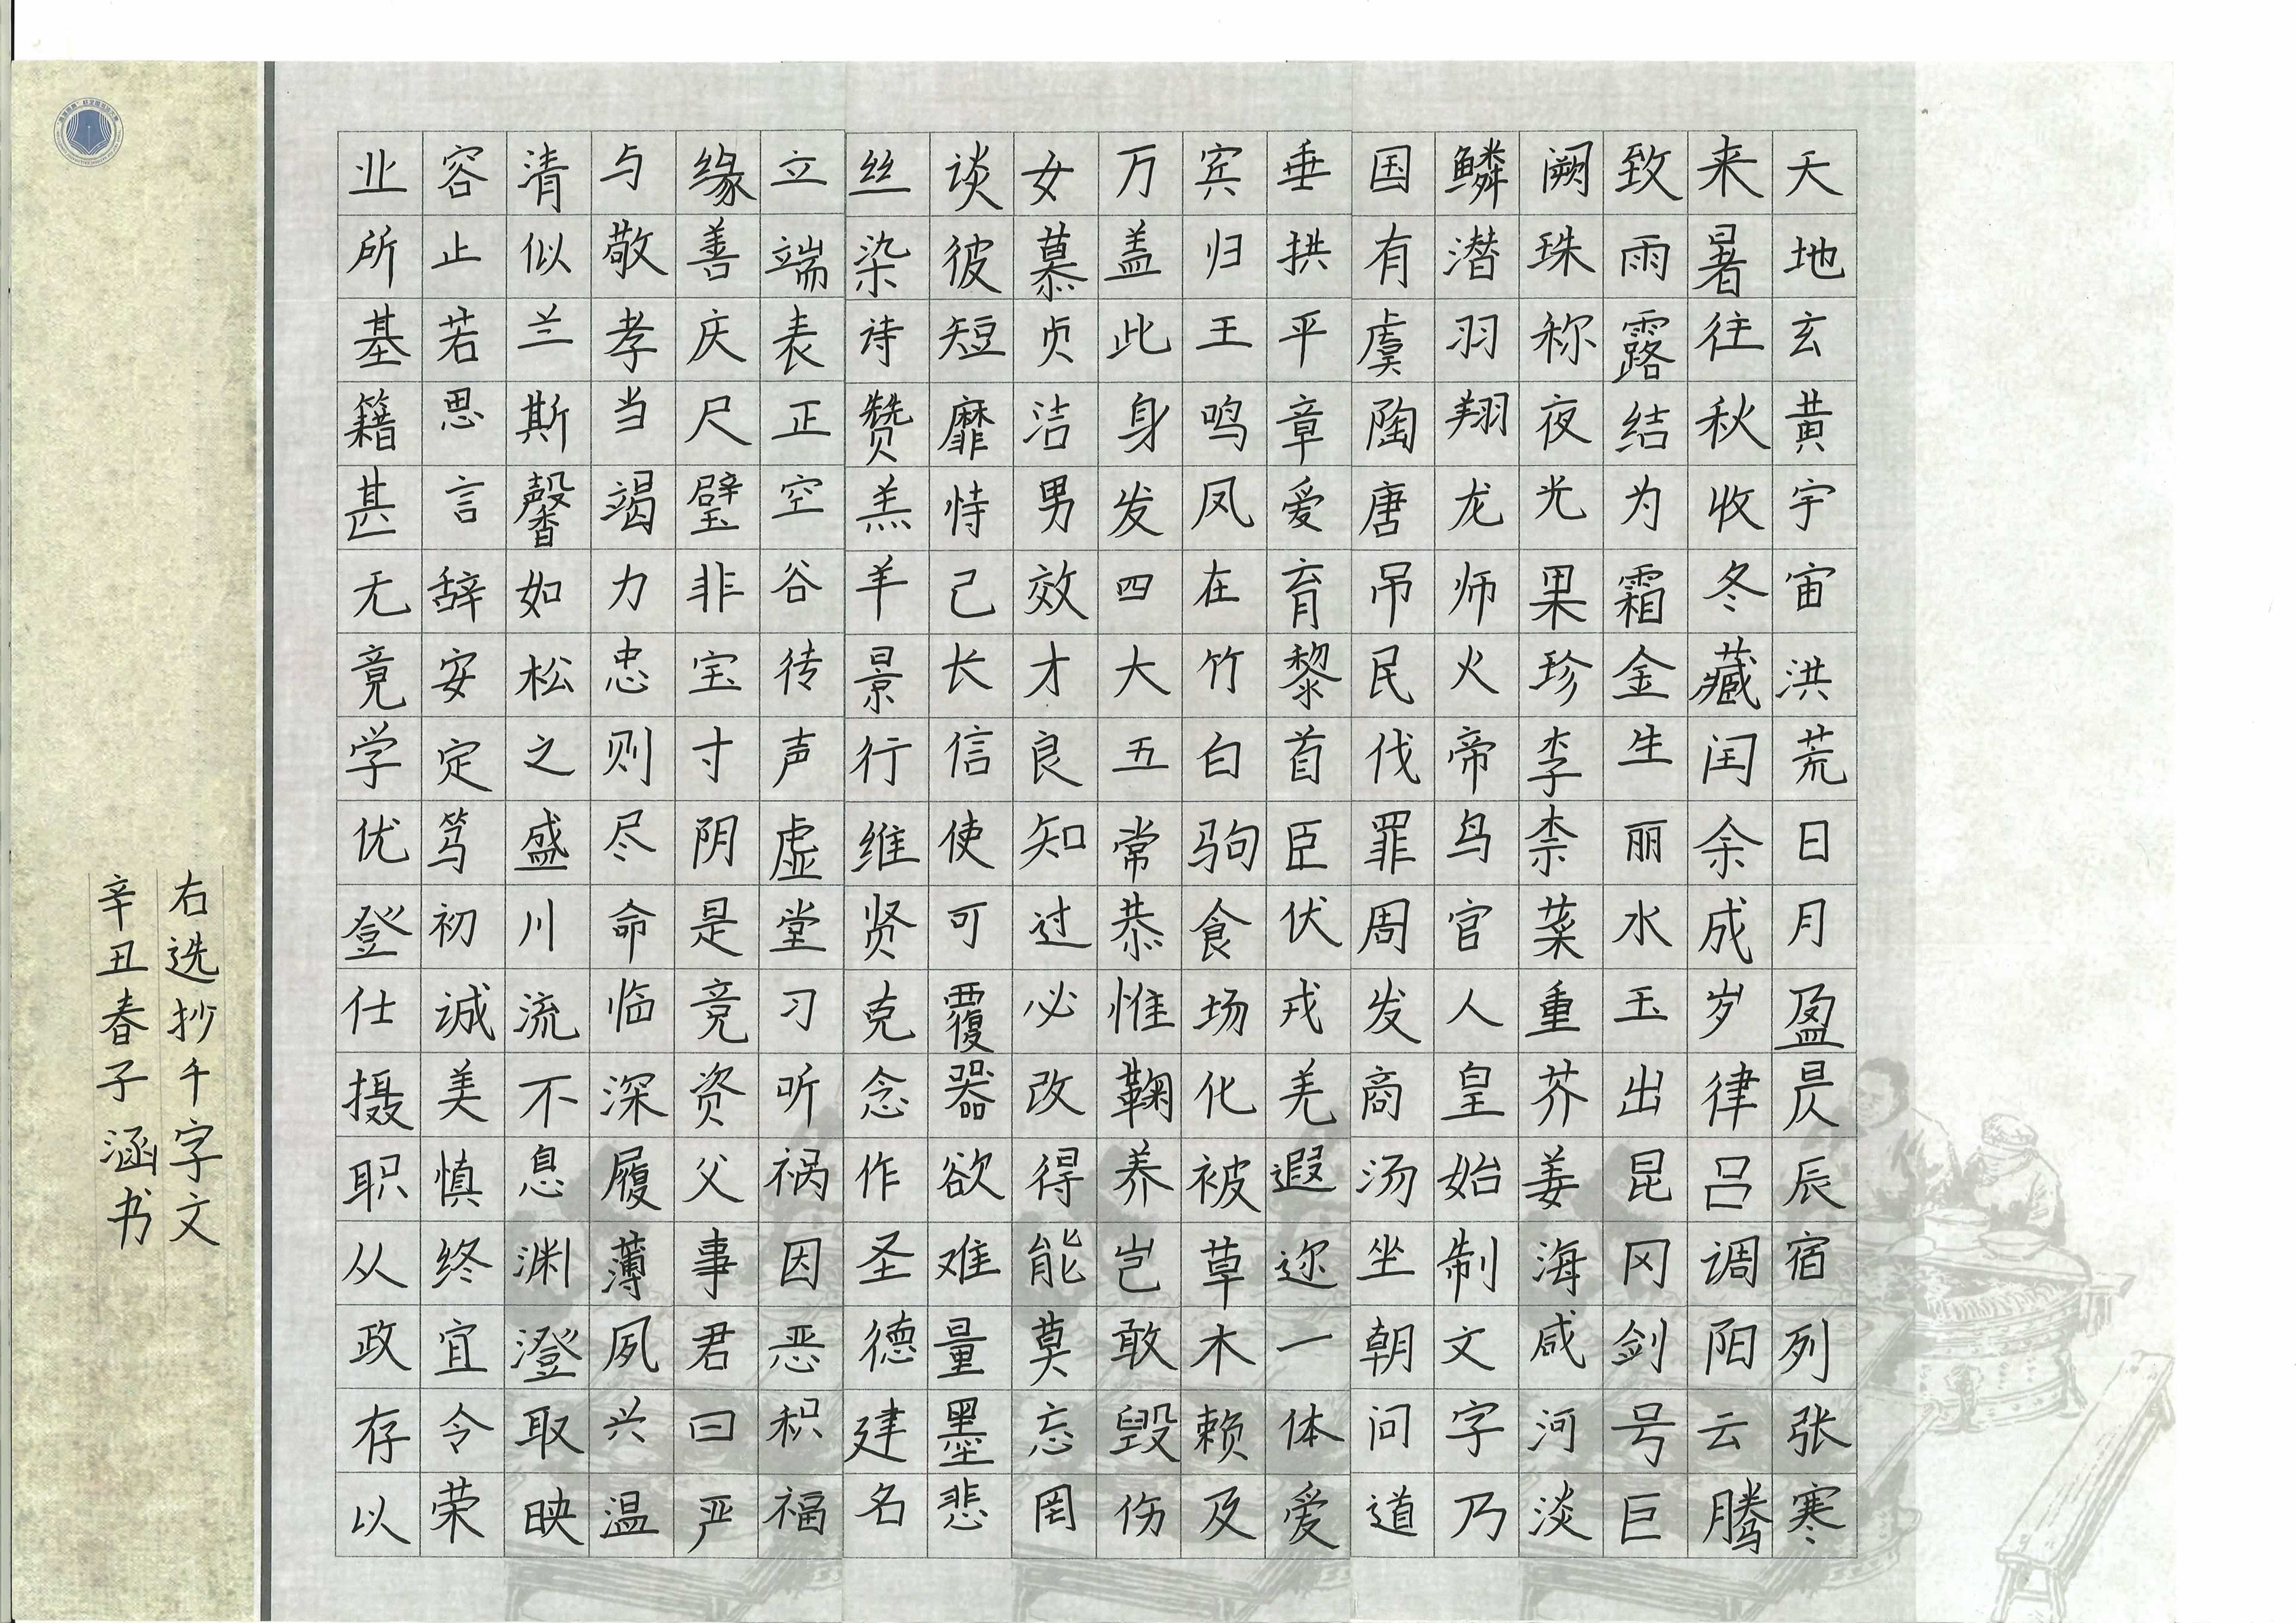 天地玄黄宇宙洪荒日月盈昃辰宿列张寒
来暑往秋收冬藏闰余成岁律吕调阳云腾
致雨露结为霜金生丽水玉出昆冈剑号巨
阙珠称夜光果珍李柰菜重芥姜海咸河淡
鳞潜羽翔龙师火帝鸟官人皇始制文字乃
国有虞陶唐吊民伐罪周发商汤坐朝问道
垂拱平章爱育黎首臣伏戎羌遐迩一体爱
宾归王鸣凤在竹白驹食场化被草木赖及
万盖此身发四大五常恭惟鞠养岂敢毁伤
女慕贞洁男效才良知过必改得能莫忘罔
谈彼短靡恃己长信使可覆器欲难量墨悲
丝染诗赞羔羊景行维贤克念作圣德建名
立端表正空谷传声虚堂习听祸因恶积福
缘善庆尺璧非宝寸阴是竞资父事君曰严
与敬孝当竭力忠则尽命临深履薄夙兴温
清似兰斯馨如松之盛川流不息渊澄取映
容止若思言辞安定笃初诚美慎终宜令荣
业所基籍甚无竟学优登仕摄职从政存以
右选抄千字文
辛丑春子涵书